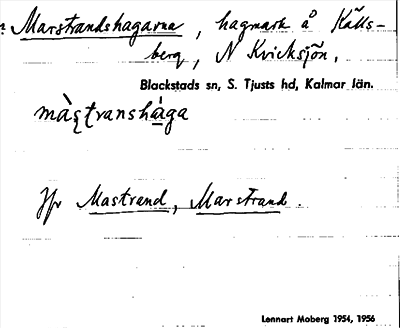 Marstrandshagarna, hagmark å Källs-
berg, N Kvicksjön.
Blackstads sn, S. Tjusts hd, Kalmar län.
màʂʈranshàga
Jfr Mastrand, Marstrand.
Lennart Moberg 1954, 1956